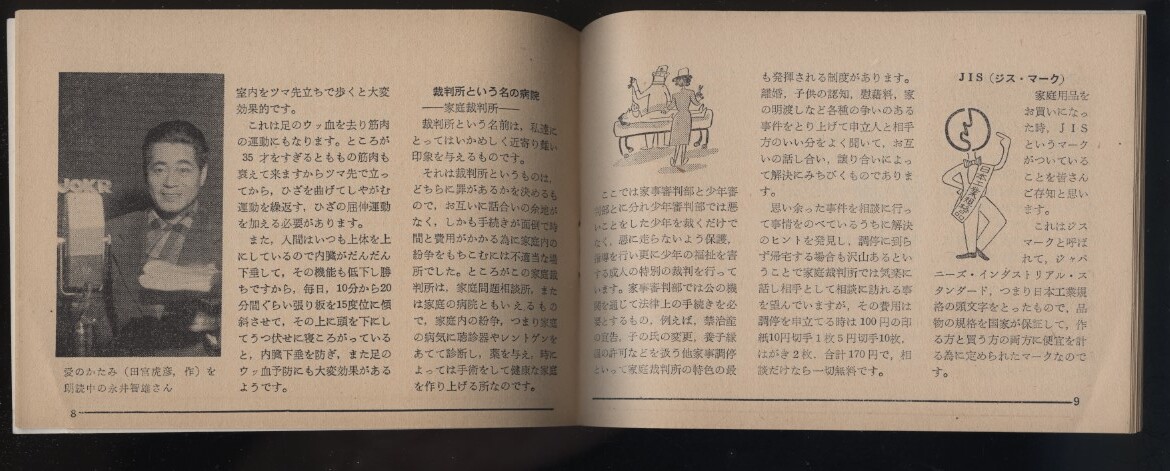 JOKR
愛のかたみ（田宮虎彦，作）を
朗読中の永井智雄さん
室内をツマ先立ちで歩くと大変
効果的です。
これは足のウッ血を去り筋肉
の運動にもなります。ところが
35 才をすぎるとももの筋肉も
衰えて来ますからツマ先で立っ
てから，ひざを曲げてしやがむ
運動を繰返す，ひざの屈伸運動
を加える必要があります。
また，人間はいつも上体を上
にしているので内臓がだんだん
下垂して，その機能も低下し勝
ちですから，毎日，10分から20
分間ぐらい張り板を15度位に傾
斜させて，その上に頭を下にし
てうつ伏せに寝ころがっている
と，内臓下垂を防ぎ，また足の
ウッ血予防にも大変効果がある
ようです。
裁判所という名の病院
──家庭裁判所──
裁判所という名前は，私達に
とってはいかめしく近寄り難い
印象を与えるものです。
それは裁判所というものは，
どちらに罪があるかを決めるも
ので，お互いに話合いの余地が
なく，しかも手続きが面倒で時
間と費用がかかる為に家庭内の
紛争をもちこむには不適当な場
所でした。ところがこの家庭裁
判所は，家庭問題相談所，また
は家庭の病院ともいえるもの
で，家庭内の紛争，つまり家庭
の病気に聴診器やレントゲンを
あてて診断し，薬を与え，時に
よっては手術をして健康な家庭
を作り上げる所なのです。
8
ここでは家事審判部と少年審
判部とに分れ少年審判部では悪
いことをした少年を裁くだけで
なく，悪に走らないよう保護，
指導を行い更に少年の福祉を害
する成人の特別の裁判を行って
います。家事審判部では公の機
関を通じて法律上の手続きを必
要とするもの，例えば，禁治産
の宣告，子の氏の変更，養子縁
組の許可などを扱う他家事調停
といって家庭裁判所の特色の最
も発揮される制度があります。
離婚，子供の認知，慰藉料，家
の明渡しなど各種の争いのある
事件をとり上げて申立人と相手
方のいい分をよく聞いて，お互
いの話し合い，譲り合いによっ
て解決にみちびくものでありま
す。
思い余った事件を相談に行っ
て事情をのべているうちに解決
のヒントを発見し，調停に到ら
ず帰宅する場合も沢山あるとい
うことで家庭裁判所では気楽に
話し相手として相談に訪れる事
を望んでいますが，その費用は
調停を申立てる時は100円の印
紙10円切手1枚5円切手10枚，
はがき2枚，合計170円で，相
談だけなら一切無料です。
JIS（ジス・マーク）
家庭用品を
お買いになっ
た時，JIS
というマーク
がついている
ことを皆さん
ご存知と思い
ます。
これはジス
マークと呼ば
れて，ジャパ
ニーズ・インダストリアル・ス
タンダード，つまり日本工業規
格の頭文字をとったもので，品
物の規格を国家が保証して，作
る方と買う方の両方に便宜を計
る為に定められたマークなので
す。
日本工業規格品
9